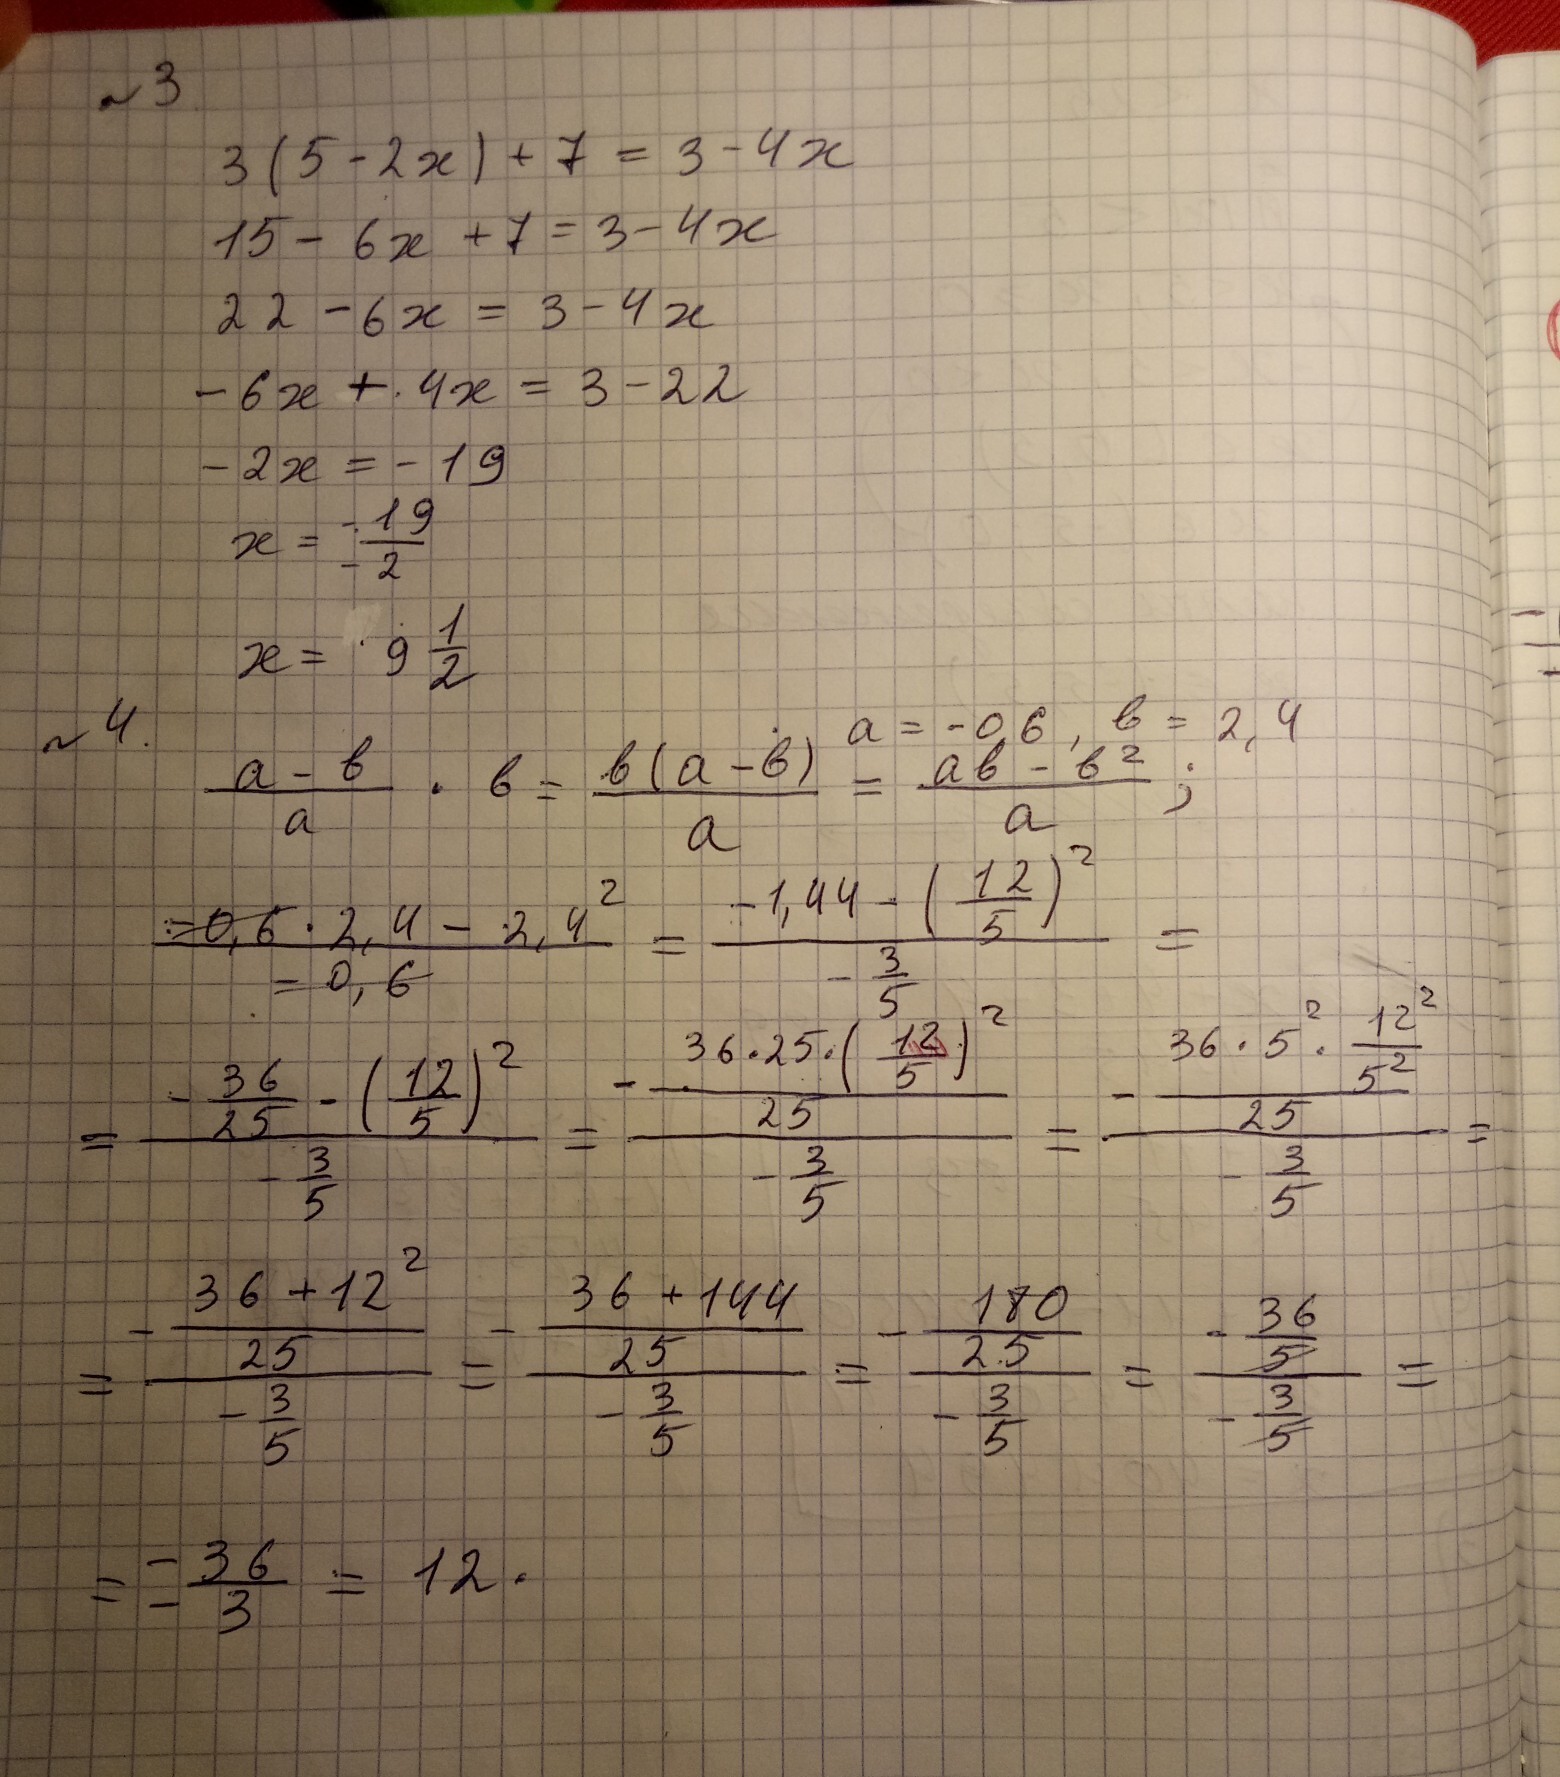 ~3.
3(5-2x)+7=3-4x
15-6x+7=3-4x
22-6x=3-4x
-6x+4x=3-22
-2x=-19
x=\frac{-19}{-2}
x=9\frac{1}{2}
~4. a=-0,6, b=2,4
\frac{a-b}{a}·b=\frac{b(a-b)}{a}=\frac{ab-b^2}{a};
\frac{=0,6·2,4-2,4^2}{=0,6}=\frac{-1,44-(\frac{12}{5})^2}{-\frac{3}{5}}=
=\frac{-\frac{36}{25}-(\frac{12}{5})^2}{-\frac{3}{5}}=\frac{-\frac{36·25·(\frac{12}{5})^2}{25}}{-\frac{3}{5}}=\frac{-\frac{36·5^2·\frac{12^2}{5^2}}{25}}{-\frac{3}{5}}=
=\frac{-\frac{36+12^2}{25}}{-\frac{3}{5}}=\frac{-\frac{36+144}{25}}{-\frac{3}{5}}=\frac{-\frac{180}{25}}{-\frac{3}{5}}=\frac{-\frac{36}{5}}{-\frac{3}{5}}=
=\frac{-36}{-3}=12.